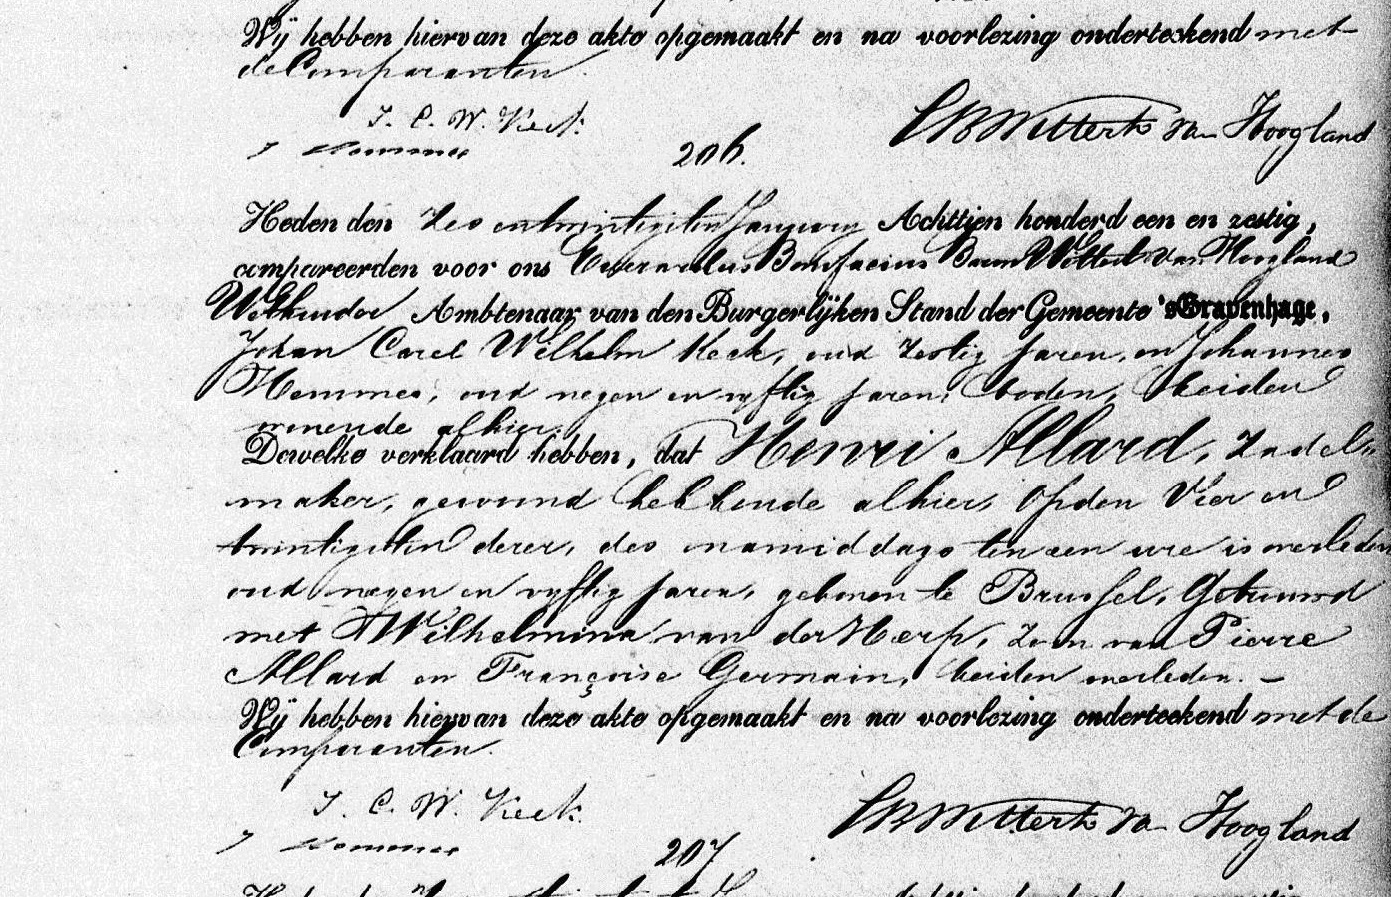 Wij hebben hiervan deze akte opgemaakt en na voorlezing onderteekend met
de Comparanten.
J. C. W. Keck
J Hommes
CB Wittert van Hoogland
206.
Heden den Zes en twintigsten Januarij Achttien honderd een en zestig,
compareerden voor ons Everardus Bonifacius Baron Wittert van Hoogland
Wethouder Ambtenaar van den Burgerlijken Stand der Gemeente 's Gravenhage,
Johan Carel Wilhelm Keck, oud zestig jaren, en Johannes
Hommes, oud negen en vyftig jaren, boden, beiden
wonende alhier,
Dewelke verklaard hebben, dat Henri Allard, Zadel-
maker, gewoond hebbende alhier, op den Vier en
twintigsten dezer, des namiddags ten een ure is overleden
oud negen en vyftig jaren, geboren te Brussel, Getrouwd
met Wilhelmina van der Herp, Zoon van Pierre
Allard en Françoise Germain, beiden overleden. —
Wij hebben hiervan deze akte opgemaakt en na voorlezing onderteekend met de
Comparanten.
J. C. W. Keck
J Hommes
Wittert van Hoogland
207